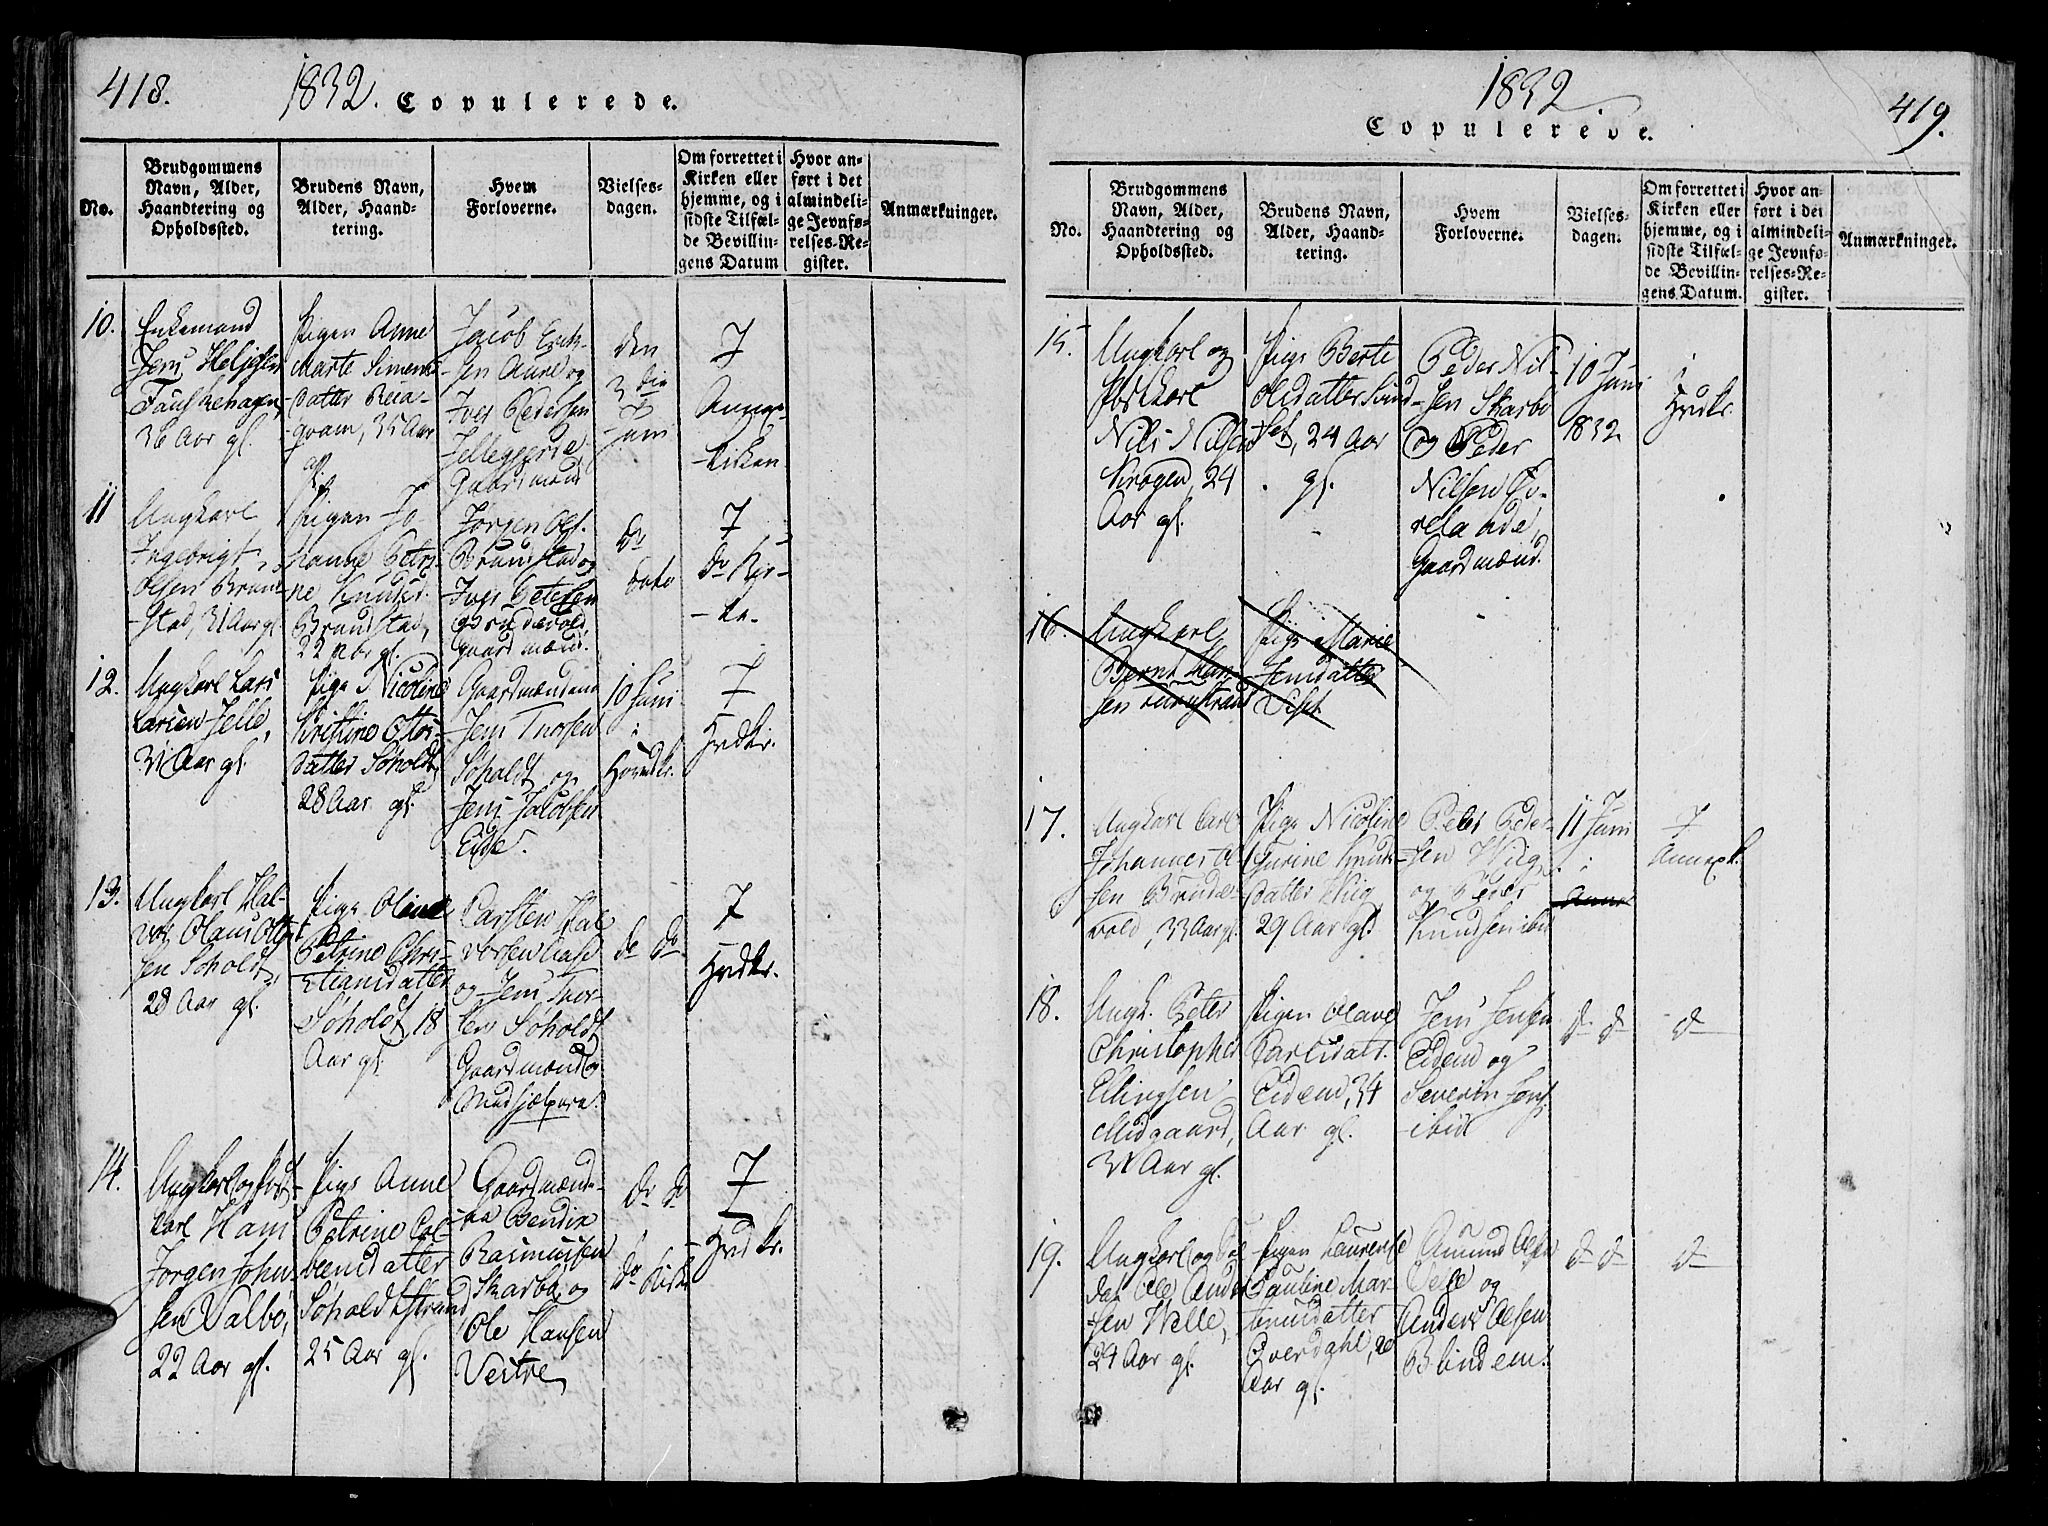 418.
1832. Copulerede.
No.
Brudgommens
Navn, Alder,
Haandtering og
Opholdssted.
Brudens Navn,
Alder, Haand-
tering.
Hvem
Forloverne.
Vielses-
dagen.
Om forrettet i
Kirken eller
hjemme, og i
sidste Tilfæl-
de Bevillin-
gens Datum
Hvor an-
ført i det
almindeli-
ge Jevnfø-
relses-Re-
gister.
Anmærkninger.
10.
Enkemand
Jens Helgesen
Fauskehagen,
36 Aar gl.
Pigen Anne
Marte Simens
datter
35 Aar
gl.
Jacob Erik-
sen Aure og
Iver Pedersen
Gaardmænd
den
3die
Juni
I
Annex-
kirken
11
Ungkarl
Ingebrigt
Olsen Brun-
stad, 31 Aar gl.
Pigen Jo
hanne Petri-
ne Knudsd.
Brunstad,
22 Aar gl.
Jørgen Ols.
Brunstad og
Iver Petersen
Brundevold,
gaardmænd.
do
dato
I
do Kir-
ke
12.
Ungkarl Lars
Larsen Jelle,
31 Aar gl.
Pige Nicoline
Kristine Ols-
datter Soholdt,
28 Aar gl.
Gaardmændene
Jens Thorsen
Soholdt og
Jens Jacobsen
Eide.
10 Juni
i
Hovedkr.
I
Hvdkr.
13.
Ungkarl Hal-
vor Olaus
sen Soholdt,
28 Aar gl.
Pige Oline
Petrine Chri-
stiansdatter
Söholdt, 18
Aar gl.
Carsten Hal
vorsen Aase
og Jens Thor-
sen Soholdt
Gaardmænd og
Medhjælpere.
do do
I
Hvdkr.
14.
Ungkarl og Post-
karl Hans
Jørgen John-
sen Valbö,
22 Aar gl.
Pige Anne
Petrine
datter
Soholdtstrand
25 Aar gl.
Gaardmænde-
ne Bendix
Rasmussen
Skarbø og
Ole Hansen
Vestre
do do
i
do Kirke
I
Hvdkr.
1832.
419.
Copulerede.
No.
Brudgommens
Navn, Alder,
Haandtering og
Opholdssted.
Brudens Navn,
Alder, Haand-
tering.
Hvem
Forloverne.
Vielses-
dagen.
Om forrettet i
Kirken eller
hjemme, og i
sidste Tilfæl-
de Bevillin-
gens Datum.
Hvor an-
ført i det
almindeli-
ge Jevnfø-
relses-Re-
gister.
Anmærkninger.
15.
Ungkarl og
Postkarl
Nils Nilsen
Krogen, 24
Aar gl.
Pige Berte
Olsdatter Sund-
set, 24 Aar
gl.
Peder Nil-
sen Skarbø
og Peder
Nilsen
Gaardmænd.
10 Juni
1832
i
Hvdkr.
16.
Ungkarl
Bernt Han
sen
Pige Marie
Jensdatter
17.
Ungkarl Carl
Johannes Ol
sen Brunde-
vold, 33 Aar gl.
Pige Nicoline
Gurine Knuds-
datter Wiig
29 Aar gl.
Peter Peder-
sen Wiig
og Peder
Knudsen ibid
11 Juni
i
I
Annexk.
18.
Ungk. Peter
Christopher
Ellingsen
Midgaard,
31 Aar gl.
Pigen Olave
Carlsdatt.
Eidem, 34
Aar gl.
Jens Jensen
Eidem og
Severin Jens.
ibid
d d
d
19.
Ungkarl og Sol
dat Ole Ander
sen Welle,
24 Aar gl.
Pigen Laurense
Pauline Mar-
datter
Overdahl, 20
Aar gl.
Amund Olsen
Velle og
Anders Olsen
Blindem.
d d
d